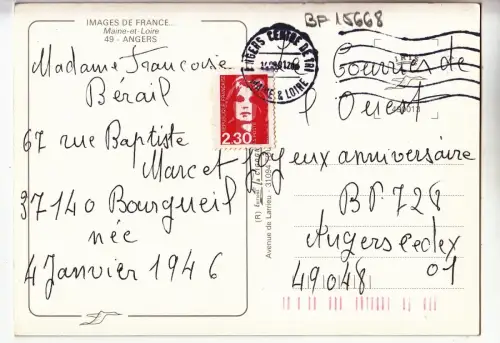 IMAGES DE FRANCE...
Maine-et-Loire
49 - ANGERS
Madame Françoise
Bérail
67 rue Baptiste
Marcet
37140 Bourgueil
née
4 Janvier 1946
BF 15668
ANGERS CENTRE DE TRI
MAINE & LOIRE
2,30
(R)
Avenue de Larrieu - 31094
Le
Courrier de
l'Ouest
Joyeux anniversaire
BP 728
Angers Cedex
49048 01